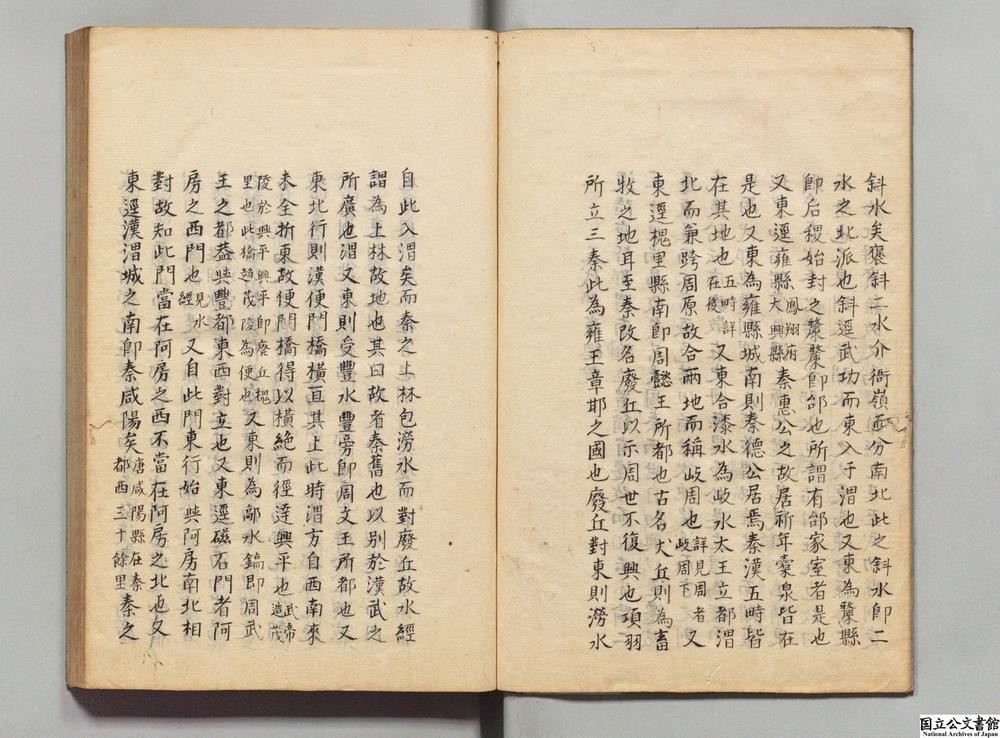 斜水矣褒斜二水介衙嶺而分南北此之斜水即二
水之北派也斜逕武功而東入于渭也又東為斄縣
即后稷始封之斄斄即邰也所謂有邰家室者是也
又東逕雍縣鳳翔府大興縣秦惠公之故居祈年槖泉皆在
是也又東為雍縣城南則秦德公居焉秦漢五畤皆
在其地也五畤詳在後又東合漆水為岐水太王立都渭
北而兼跨周原故合兩地而稱岐周也詳見周者岐周下又
東逕槐里縣南即周懿王所都也古名犬丘則為畜
牧之地耳至秦改名廢丘以示周世不復興也項羽
所立三秦此為雍王章邯之國也廢丘對東則澇水
自此入渭矣而秦之上林包澇水而對廢丘故水經
謂為上林故地也其曰故者秦舊也以別於漢武之
所廣也渭又東則受豐水豐旁即周文王所都也又
東北行則漢便門橋橫亘其上此時渭方自西南來
未全折東故便門橋得以橫絶而徑達興平也武帝造茂
陵於興平興平即廢丘槐里也此橋趨茂陵為便也又東則為鄗水鎬即周武
王之都葢與豐都東西對立也又東逕磁石門者阿
房之西門也見水經又自此門東行始與阿房南北相
對故知此門當在阿房之西不當在阿房之北也又
東逕漢渭城之南即秦咸陽矣唐咸陽縣在秦都西三十餘里秦之
国立公文書館
National Archives of Japan